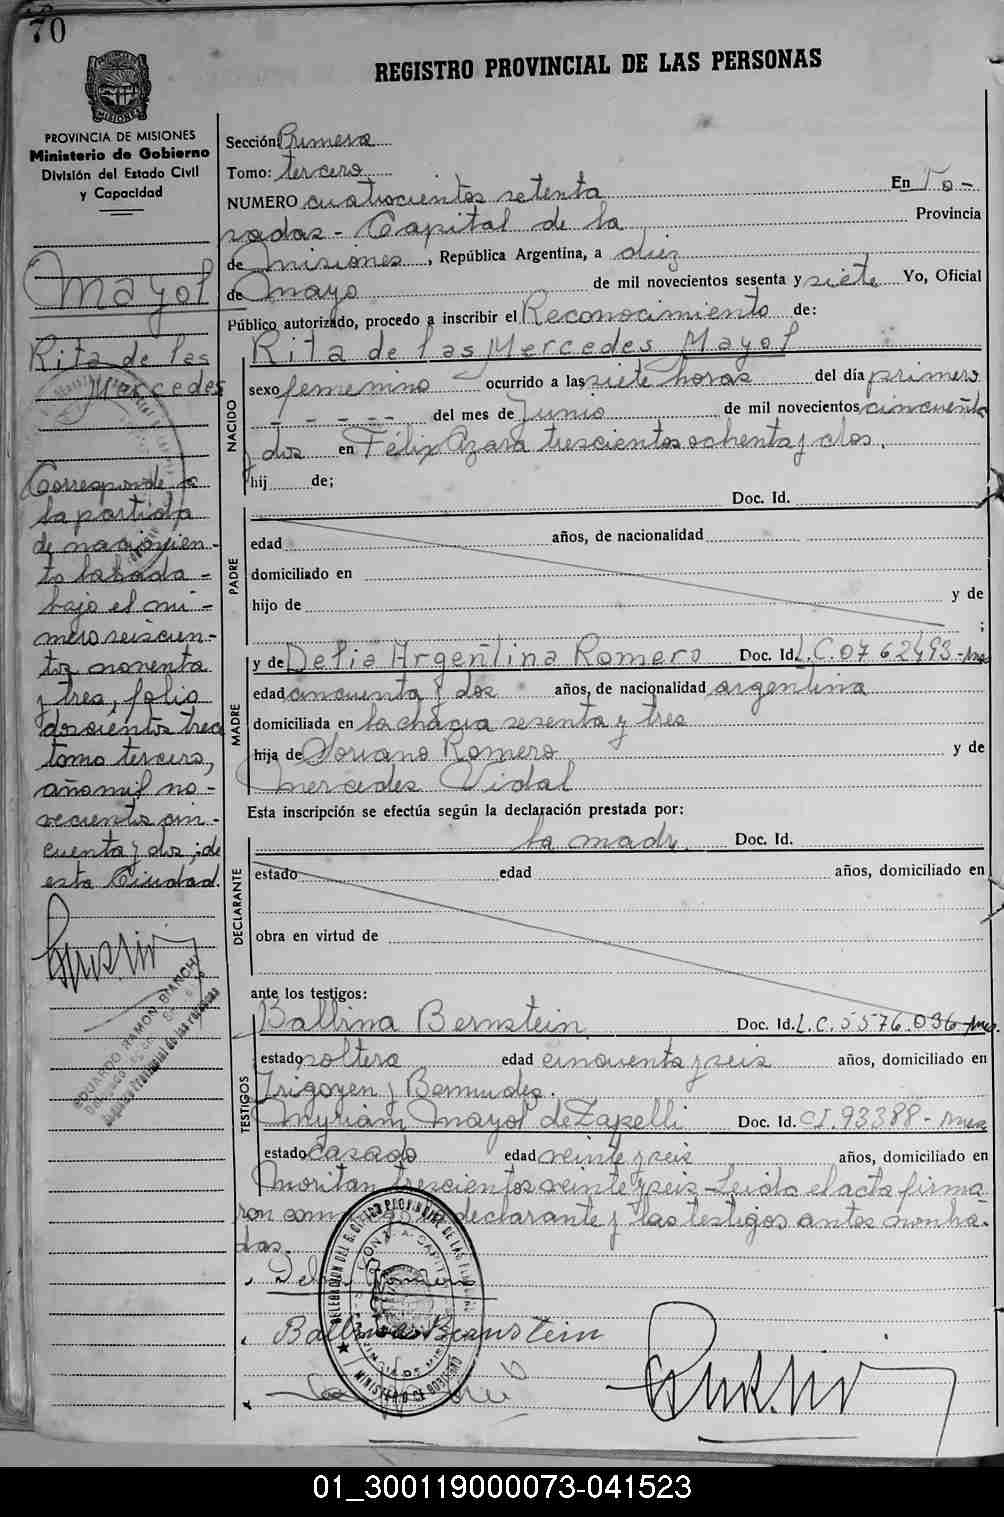 70
REGISTRO PROVINCIAL DE LAS PERSONAS
PROVINCIA DE MISIONES
Ministerio de Gobierno
División del Estado Civil
y Capacidad
Mayol
Rita de las
Mercedes
Corresponde a
la partida
de nacimien-
to labrada -
bajo el nú-
mero seiscien-
tos noventa
y tres, folio
doscientos trece
tomo tercero,
año mil no-
vecientos cin-
cuenta y dos; de
esta Ciudad.
EDUARDO RAMON BIANCHI
Sección Primera
Tomo: tercero
NUMERO cuatrocientos setenta En Po-
sadas - Capital de la Provincia
de Misiones, República Argentina, a diez
de Mayo de mil novecientos sesenta y siete Yo, Oficial
Público autorizado, procedo a inscribir el Reconocimiento de:
NACIDO
Rita de las Mercedes Mayol
sexo femenino ocurrido a las siete horas del día primero
del mes de Junio de mil novecientos cincuenta
y dos en Félix Azara trescientos ochenta y dos.
hij de;
PADRE
Doc. Id.
edad años, de nacionalidad
domiciliado en
hijo de y de
;
MADRE
y de Delia Argentina Romero Doc. Id. L.C.0762493-Mas
edad cincuenta y dos años, de nacionalidad argentina
domiciliada en la chacra sesenta y tres
hija de Soriano Romero y de
Mercedes Vidal
Esta inscripción se efectúa según la declaración prestada por:
DECLARANTE
la madre. Doc. Id.
estado edad años, domiciliado en
obra en virtud de
ante los testigos:
TESTIGOS
Balbina Bernstein Doc. Id. L.C.5576.036-Mas.
estado soltera edad cincuenta y seis años, domiciliado en
Irigoyen y Bermudes.
Myriam Mayol de Zapelli Doc. Id. CI.93388-Mas
estado casado edad veinte y seis años, domiciliado en
Moritan trescientos veinte y seis - Leída el acta firma
ron conmigo declarante y las testigos antes nombra
das.
Delia Romero
Balbina Bernstein
MINISTERIO DE GOBIERNO
01_300119000073-041523